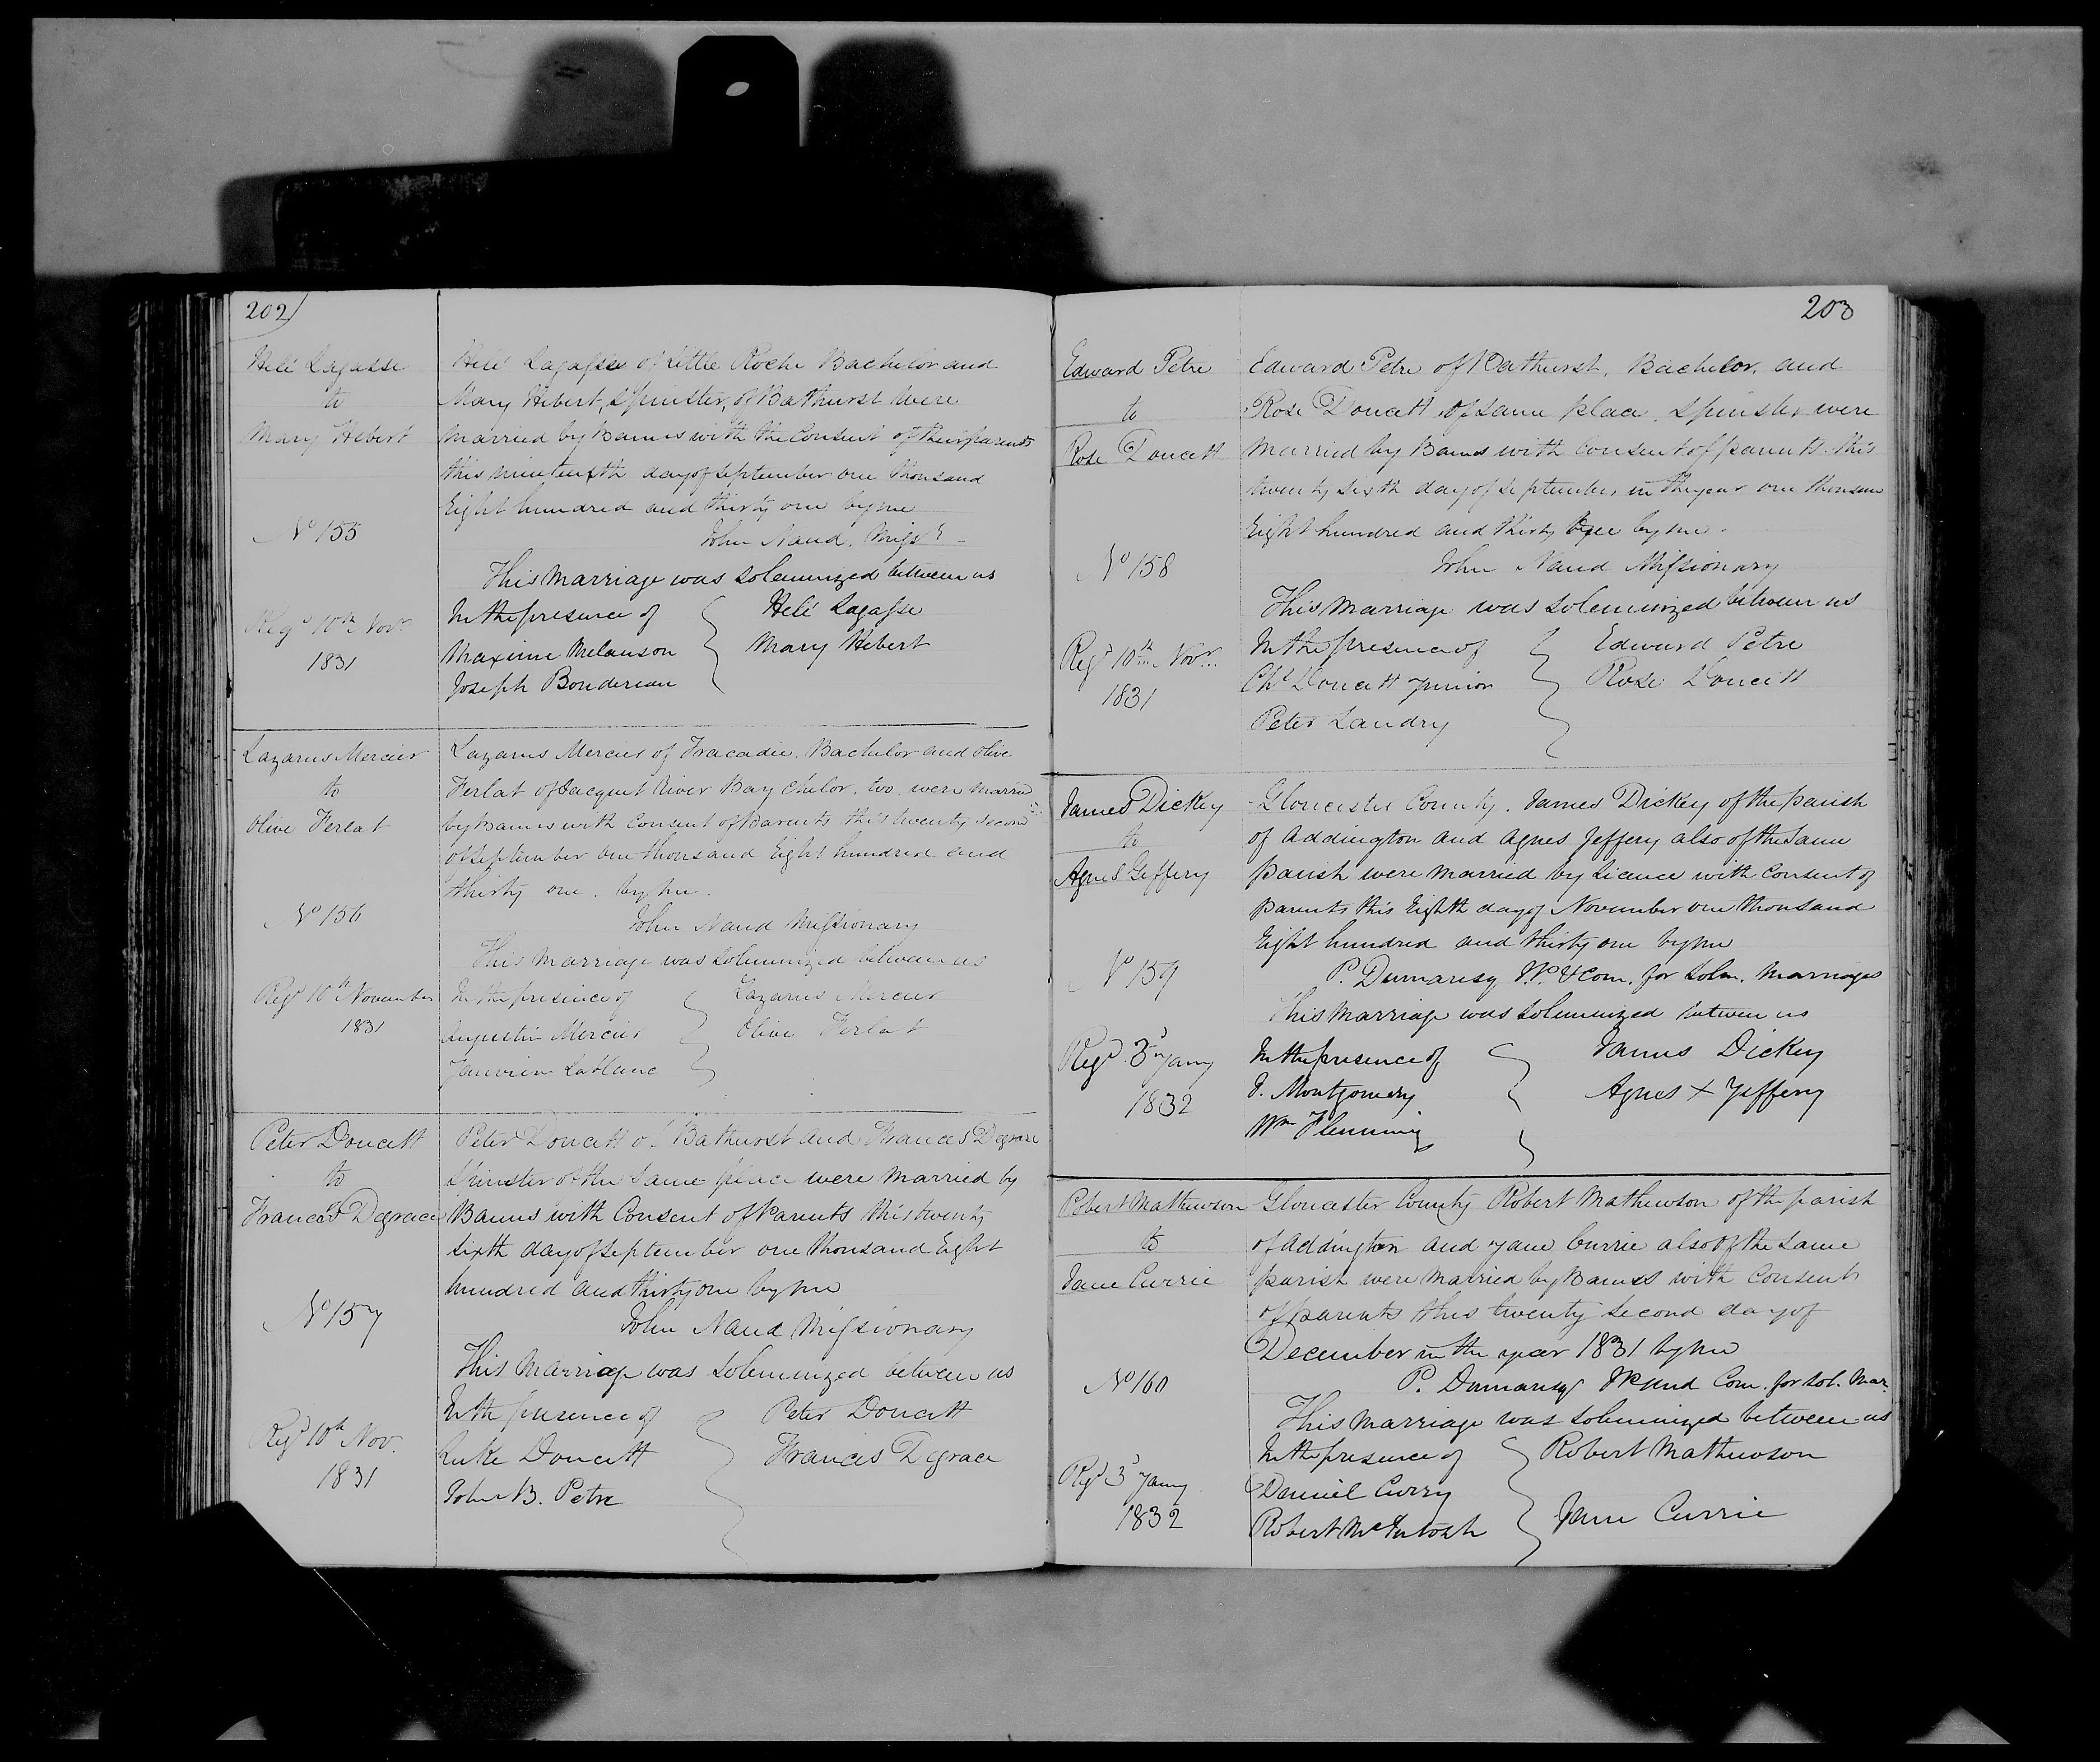 202
Helé Lagasse
to
Mary Hebert
No 155
Regd 10th Novr
1831
Helé Lagasse of Little Roche Bachelor and
Mary Hebert, Spinster, of Bathurst were
married by Banns with the Consent of their parents
this nineteenth day of September one thousand
Eight hundred and thirty one by me
John Naud. Missy
This Marriage was Solemnized between us
In the presence of
Maxime Melanson
Joseph Boudereau
Helé Lagasse
Mary Hebert
Lazarus Mercier
to
Olive Ferlat
No 156
Regd 10th November
1831
Lazarus Mercier of Tracadie. Bachelor and Olive
Ferlat of Jacquet River Bay Chelor, too were married
by Banns with Consent of Parents this twenty second
of September one thousand Eight hundred and
thirty one. by me.
John Naud Missionary
This Marriage was Solemnized between us
In the presence of
Augustin Mercier
Lablanc
Lazarus Mercier
Olive Ferlat
Peter Doucett
to
Frances Degrace
No 157
Regd 10th Nov.
1831
Peter Doucett of Bathurst and Frances Degrace
Spinster of the Same place were Married by
Banns with Consent of Parents this twenty
sixth day of September one thousand Eight
hundred and thirty one by me
John Naud Missionary
This Marriage was Solemnized between us
In the presence of
Luke Doucett
John B. Petre
Peter Doucett
Frances Degrace
203
Edward Petre
to
Rose Doucett
No 158
Regd 10th Novr
1831
Edward Petre of Bathurst, Bachelor, and
Rose Doucett, of same place. Spinster were
married by Banns with Consent of parents this
twenty sixth day of September, in the year one thousand
Eight hundred and thirty by me.
John Naud Missionary
This Marriage was Solemnized between us
In the presence of
Chs Doucett Junior
Peter Landry
Edward Petre
Rose Doucett
James Dickey
to
Agnes Jeffery
No 159
Regd 3d Jany
1832
Gloucester County. James Dickey of the parish
of Addington and Agnes Jeffery also of the Same
parish were married by Licence with Consent of
parents this Eighth day of November one thousand
Eight hundred and thirty one by me
P. Dumaresq J.P. & Com. for Solm. Marriages
This Marriage was Solemnized between us
In the presence of
J. Montgomery
Wm Flemming
James Dickey
Agnes X Jeffery
Robert Mathewson
to
Jane Currie
No 160
Regd 3d Jany
1832
Gloucester County Robert Mathewson of the parish
of Addington and Jane Currie also of the Same
parish were married by Banns with Consent
of parents this twenty Second day of
December in the year 1831 by me
P. Dumaresq JP and Com. for Sol. Mar.
This Marriage was Solemnized between us
In the presence of
Daniel Curry
Robert McIntosh
Robert Mathewson
Jane Currie